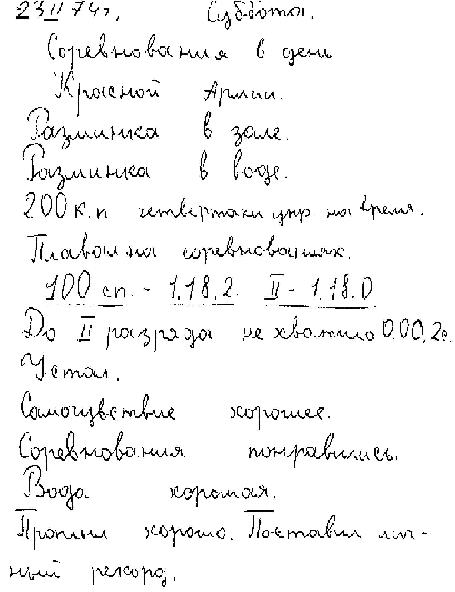 23 II 74г. Суббота.
Соревнования в день
Красной Армии.
Разминка в зале.
Разминка в воде.
200 к.п четвертаки упр на время.
Плавал на соревнованиях.
100 сп. - 1.18.2. II - 1.18.0
До II разряда не хватило 0.00.2с.
Устал.
Самочувствие хорошее.
Соревнования понравились.
Вода хорошая.
Проплыл хорошо. Поставил лич-
ный рекорд.